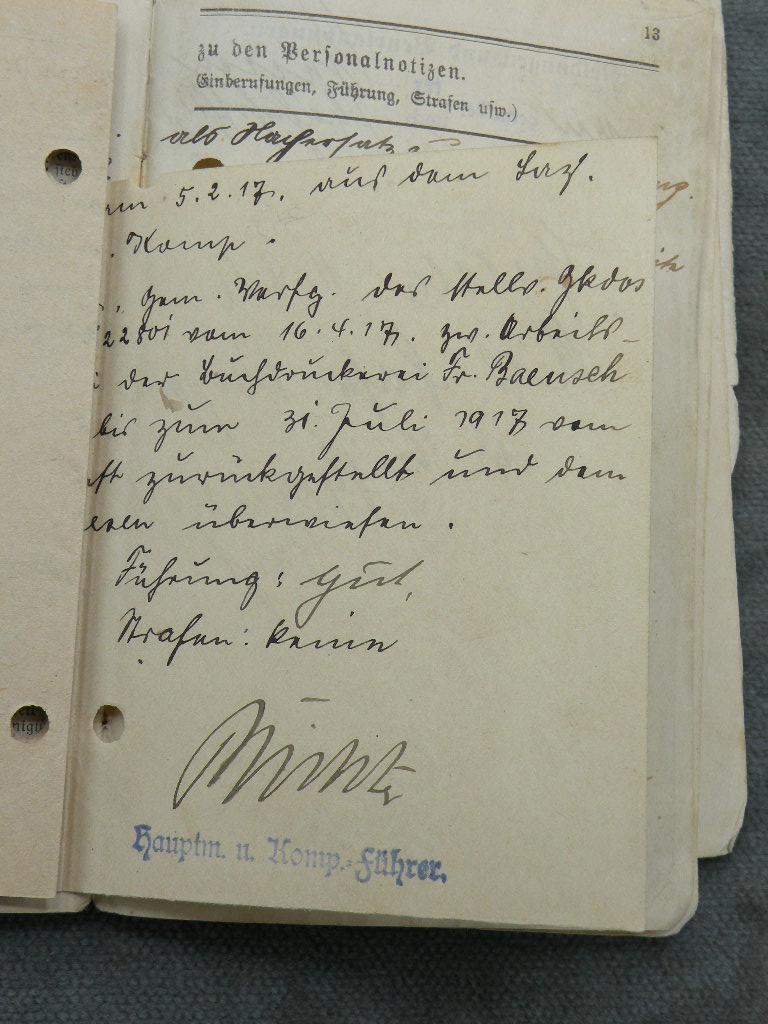 13
zu den Personalnotizen.
(Einberufungen, Führung, Strafen usw.)
als Nachersatz
am 5.2.17. aus dem Laz.
. Komp.
, gem. Verfg. des stellv. Gkdos
22801 vom 16.4.17. zw. Arbeits-
der Buchdruckerei Fr. Baensch
bis zum 31. Juli 1917 vom
zurückgestellt und dem
überwiesen.
Führung: gut,
Strafen: keine
Hauptm. u. Komp.-Führer.